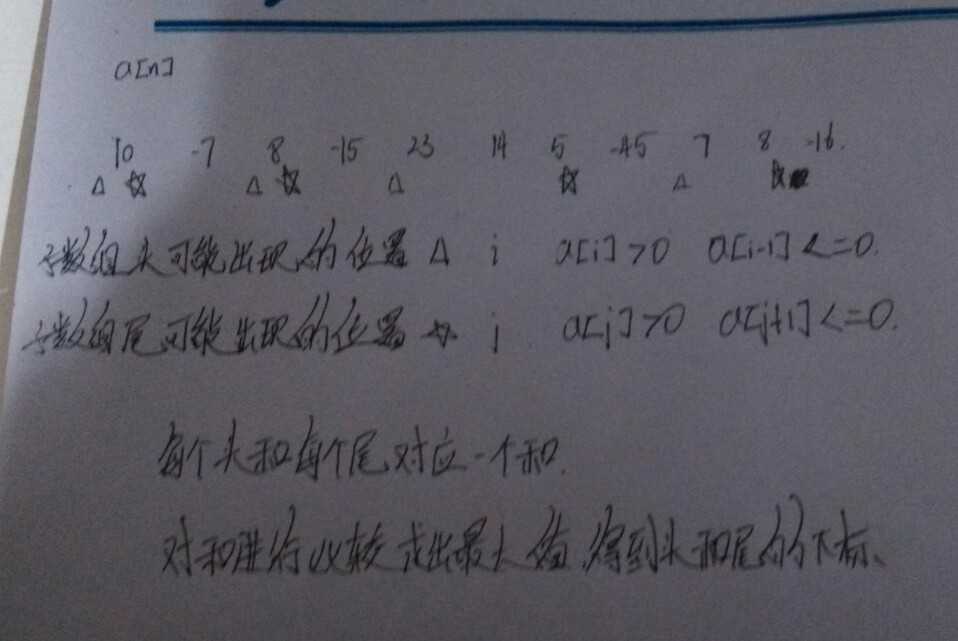 a[n]
10 -7 8 -15 23 14 5 -45 7 8 -16.
△ ☆ △ ☆ △ ☆ △ ☆
子数组头可能出现的位置 △ i a[i]>0 a[i-1]<=0.
子数组尾可能出现的位置 ☆ j a[j]>0 a[j+1]<=0.
每个头和每个尾对应一个和.
对和进行比较求出最大值,得到头和尾的下标、